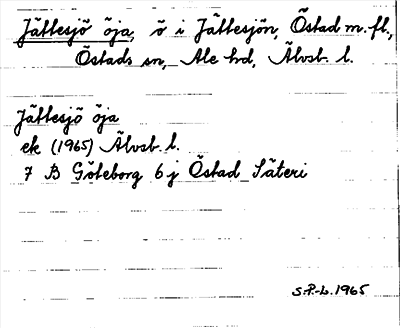 Jättesjö öja, ö i Jättesjön, Östad m. fl.,
Östads sn, Ale hd, Älvsb. l.
Jättesjö öja
ek (1965) Älvsb. l.
7 B Göteborg 6 j Östad Säteri
S.P.-L. 1965